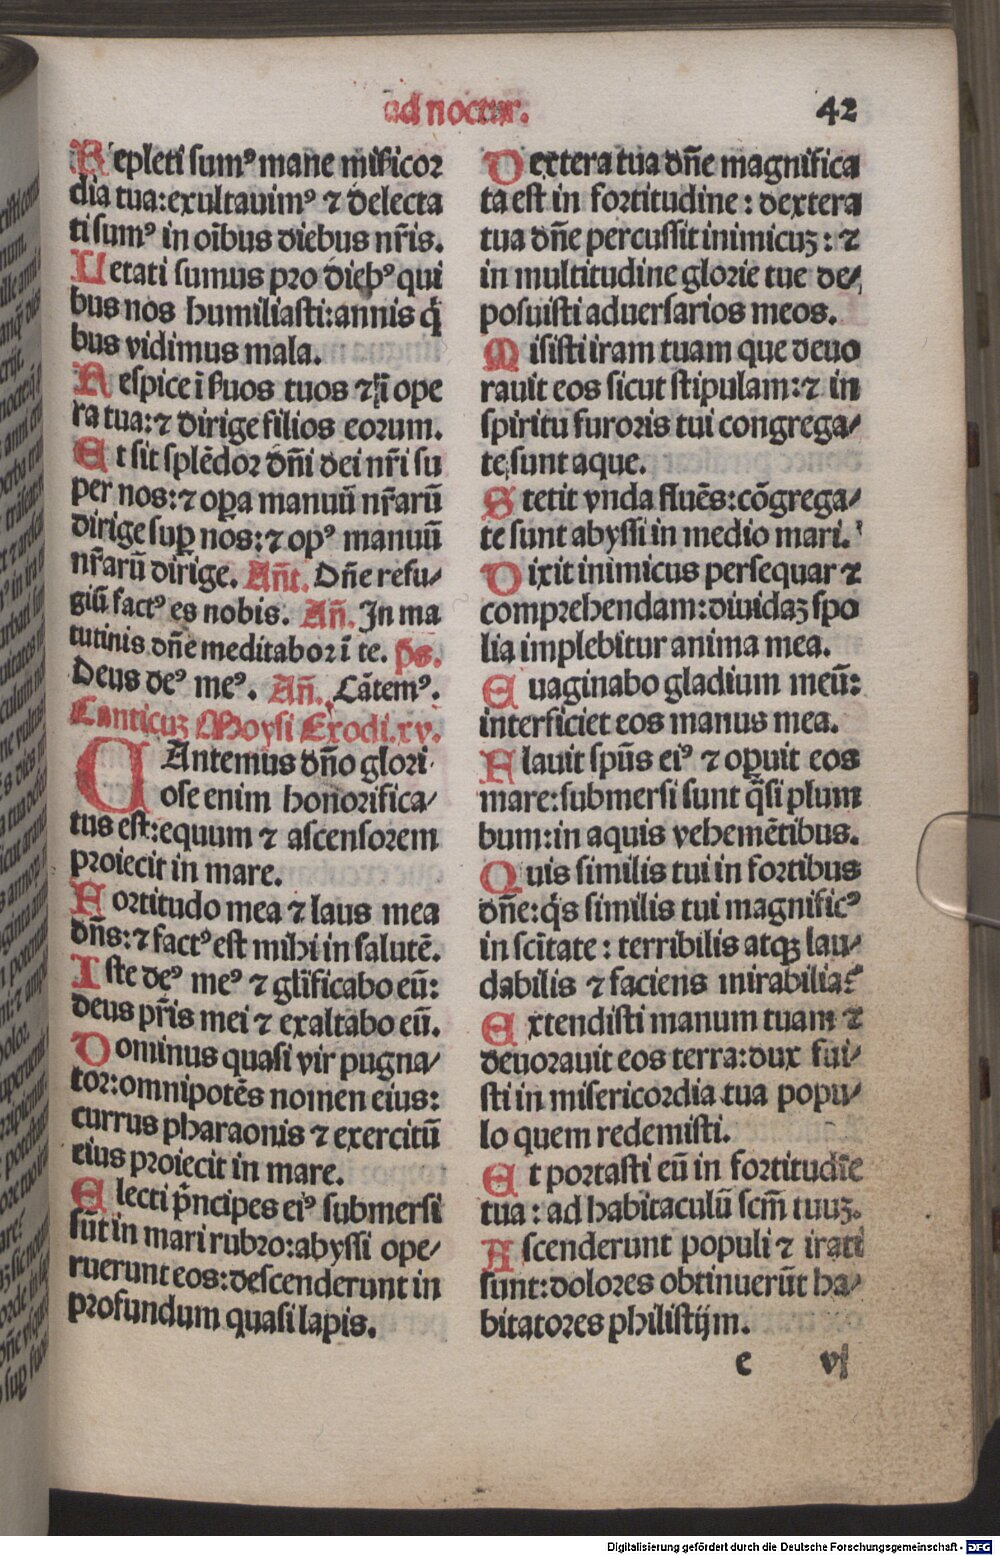 ad noctur.
42
Repleti sumꝰ mane mīẜicor
dia tua:exultauimꝰ ⁊ delecta
ti sumꝰ in oībus diebus nr̄is.
Letati sumus pro diebꝰ qui
bus nos humiliasti:annis q̄
bus vidimus mala.
Respice ī ẜuos tuos ⁊ ī ope
ra tua:⁊ dirige filios eorum.
Et sit splēdor dn̄i dei nr̄i su
per nos:⁊ oꝑa manuū nr̄arū
dirige suꝑ nos:⁊ opꝰ manuū
nr̄arū dirige. Ant̄. Dn̄e refu⸗
giū factꝰ es nobis. An̄. In ma
tutinis dn̄e meditabor ī te. p̄s.
Deus deꝰ meꝰ. An̄. Cātemꝰ.
Canticuꝫ Moysi Exodi.xv.
CAntemus dn̄o glori
ose enim honorifica⸗
tus est:equum ⁊ ascensorem
proiecit in mare.
Fortitudo mea ⁊ laus mea
dn̄s:⁊ factꝰ est mihi in salutē.
Iste deꝰ meꝰ ⁊ gl̄ificabo eū:
deus pr̄is mei ⁊ exaltabo eū.
Dominus quasi vir pugna⸗
tor:omnipotēs nomen eius:
currus pharaonis ⁊ exercitū
eius proiecit in mare.
Electi p̄ncipes eiꝰ submersi
sūt in mari rubro:abyssi ope⸗
ruerunt eos:descenderunt in
profundum quasi lapis.
Dextera tua dn̄e magnifica
ta est in fortitudine: dextera
tua dn̄e percussit inimicuꝫ: ⁊
in multitudine glorie tue de⸗
posuisti aduersarios meos.
Misisti iram tuam que deuo
rauit eos sicut stipulam:⁊ in
spiritu furoris tui congrega⸗
te sunt aque.
Stetit vnda fluēs:cōgrega⸗
te sunt abyssi in medio mari.
Dixit inimicus persequar ⁊
comprehendam:diuidaꝫ spo
lia implebitur anima mea.
Euaginabo gladium meū:
interficiet eos manus mea.
Flauit spūs eiꝰ ⁊ oꝑuit eos
mare:submersi sunt q̄si plum
bum:in aquis vehemētibus.
Quis similis tui in fortibus
dn̄e:q̄s similis tui magnificꝰ
in scītate: terribilis atqꝫ lau⸗
dabilis ⁊ faciens mirabilia?
Extendisti manum tuam ⁊
deuorauit eos terra:dux fui⸗
sti in misericordia tua popu⸗
lo quem redemisti.
Et portasti eū in fortitudīe
tua: ad habitaculū scm̄ tuuꝫ.
Ascenderunt populi ⁊ irati
sunt:dolores obtinuerūt ha⸗
bitatores philistijm.
e vj
Digitalisierung gefördert durch die Deutsche Forschungsgemeinschaft - DFG